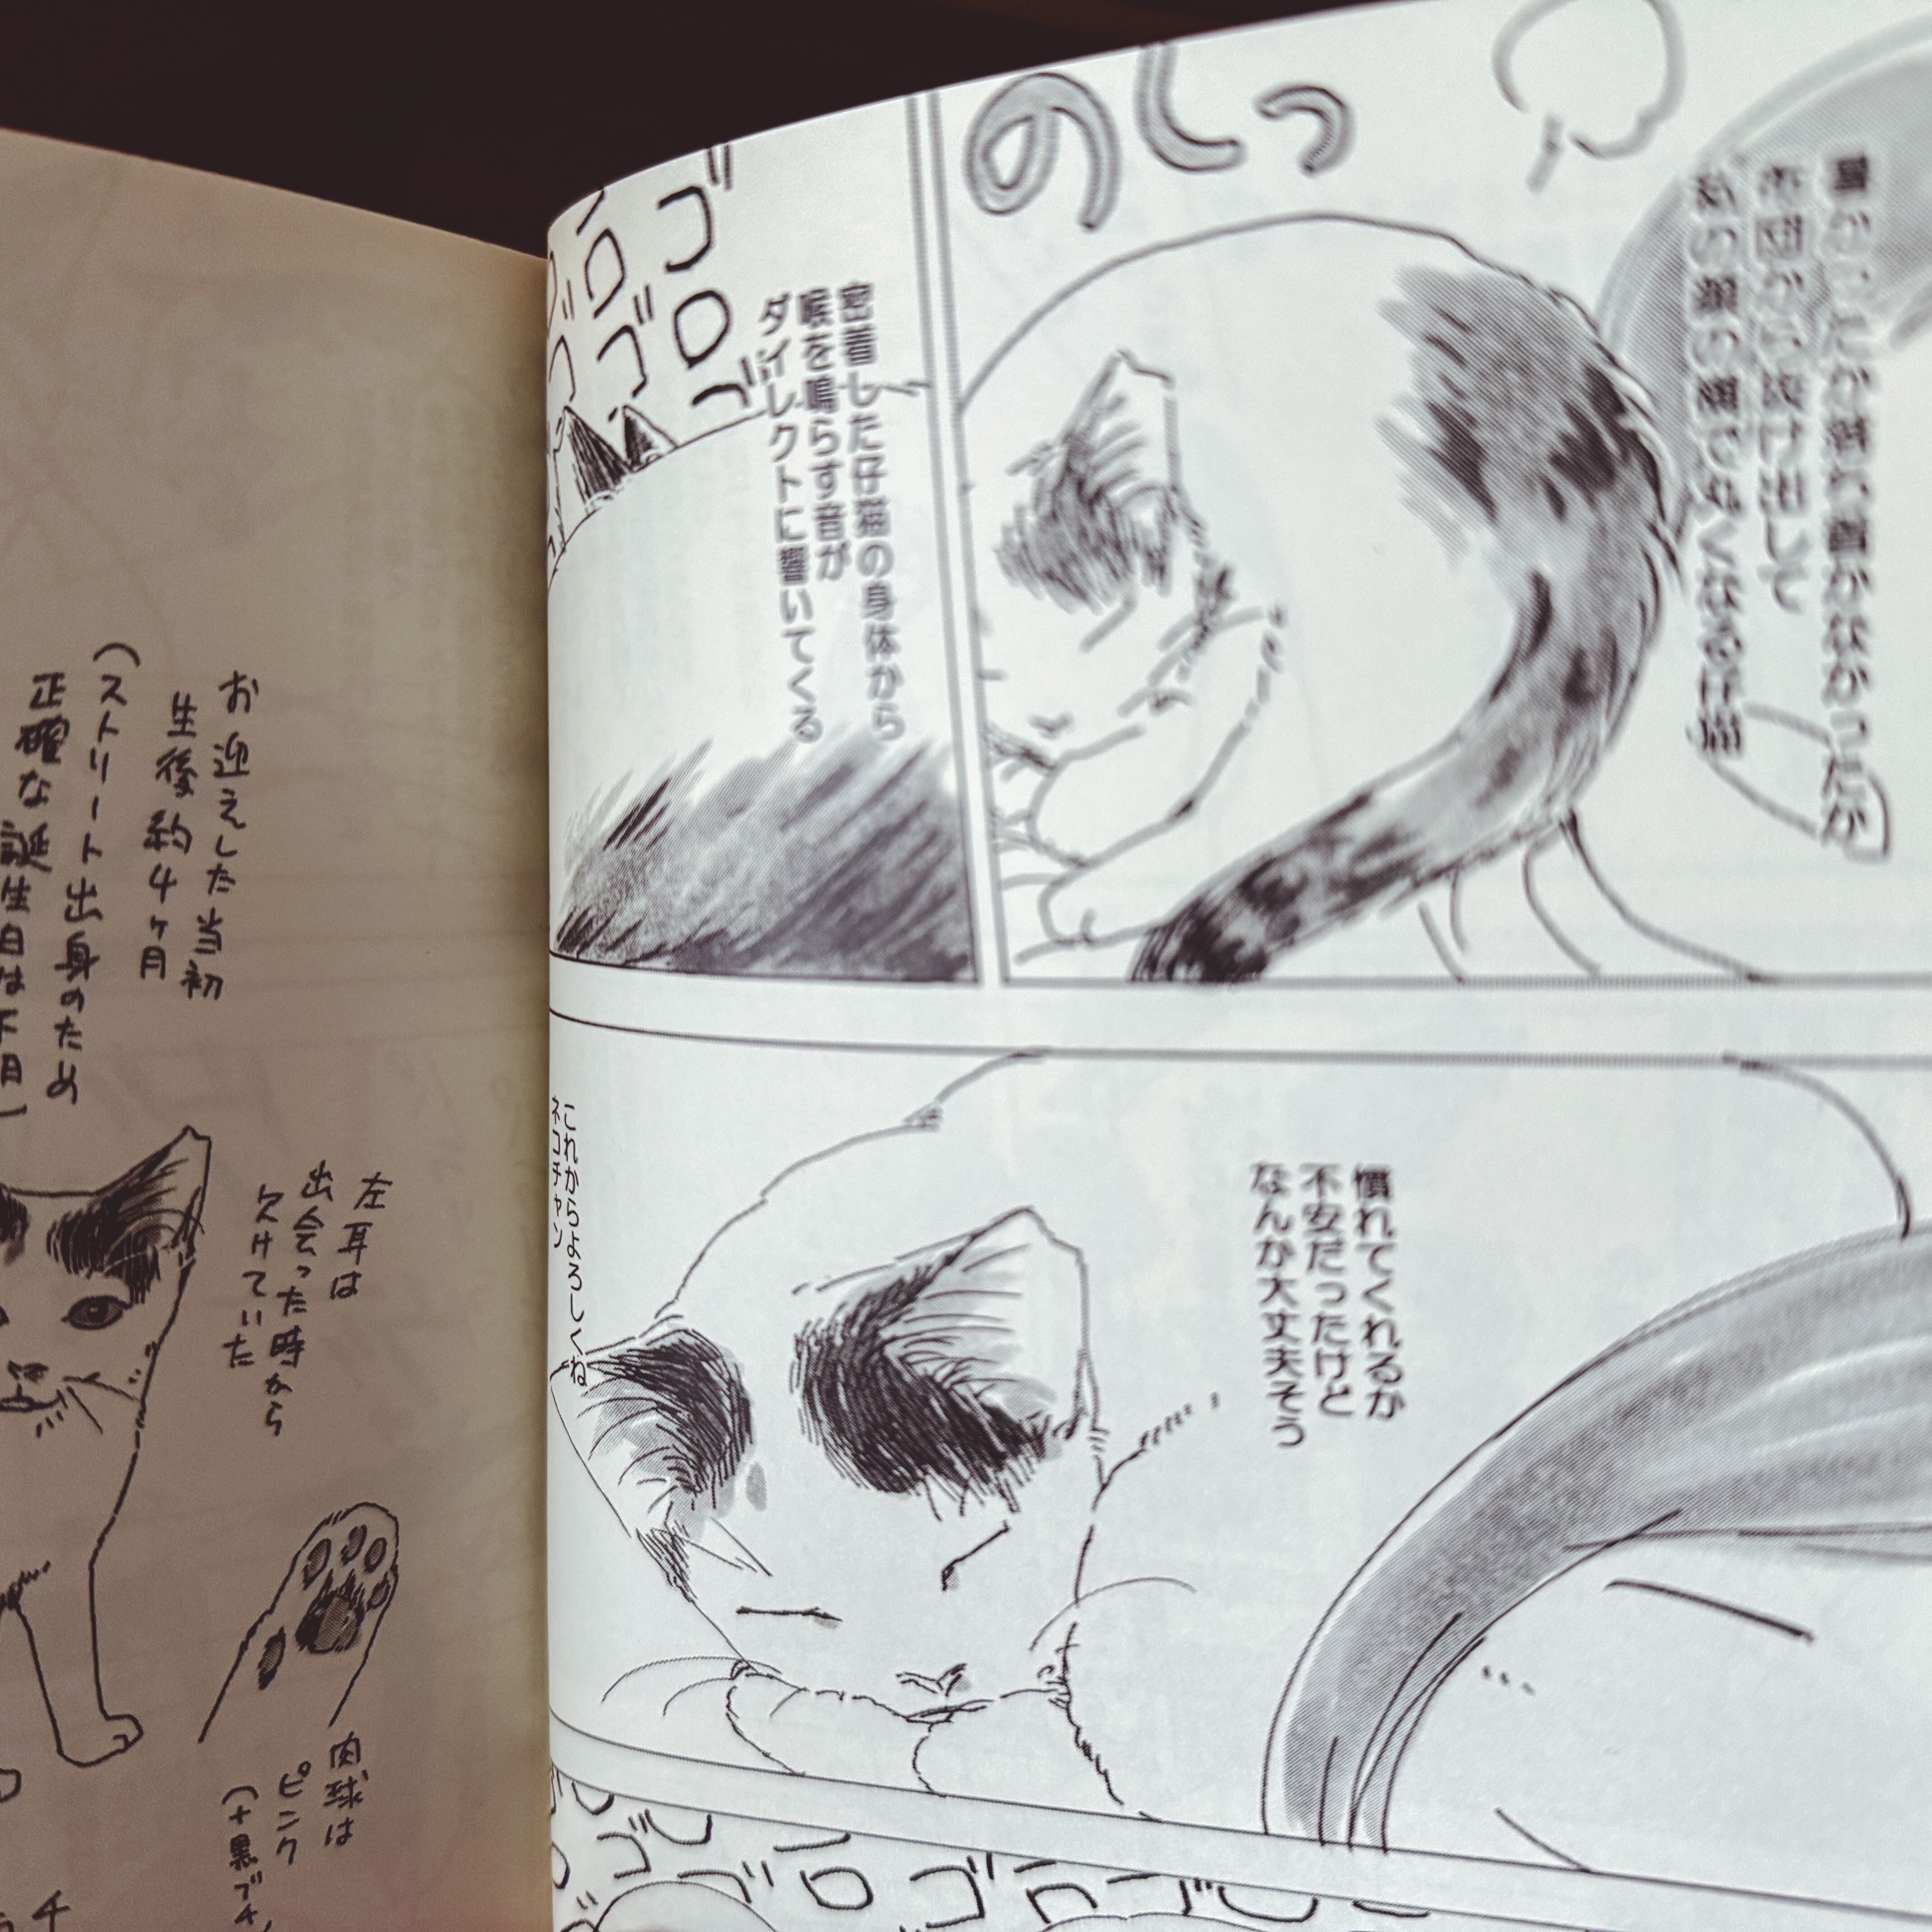 暑かったか落ち着かなかったか
布団から抜け出して
私の顔の横で丸くなる仔猫
のしっ
密着した仔猫の身体から
喉を鳴らす音が
ダイレクトに響いてくる
ゴロゴ
ロゴ
慣れてくれるか
不安だったけど
なんか大丈夫そう
これからよろしくね
ネコチャン
ゴロゴロゴ
お迎えした当初
生後約4ヶ月
(ストリート出身のため
正確な誕生日は不明)
左耳は
出会った時から
欠けていた
肉球は
ピンク
(+黒ブチ